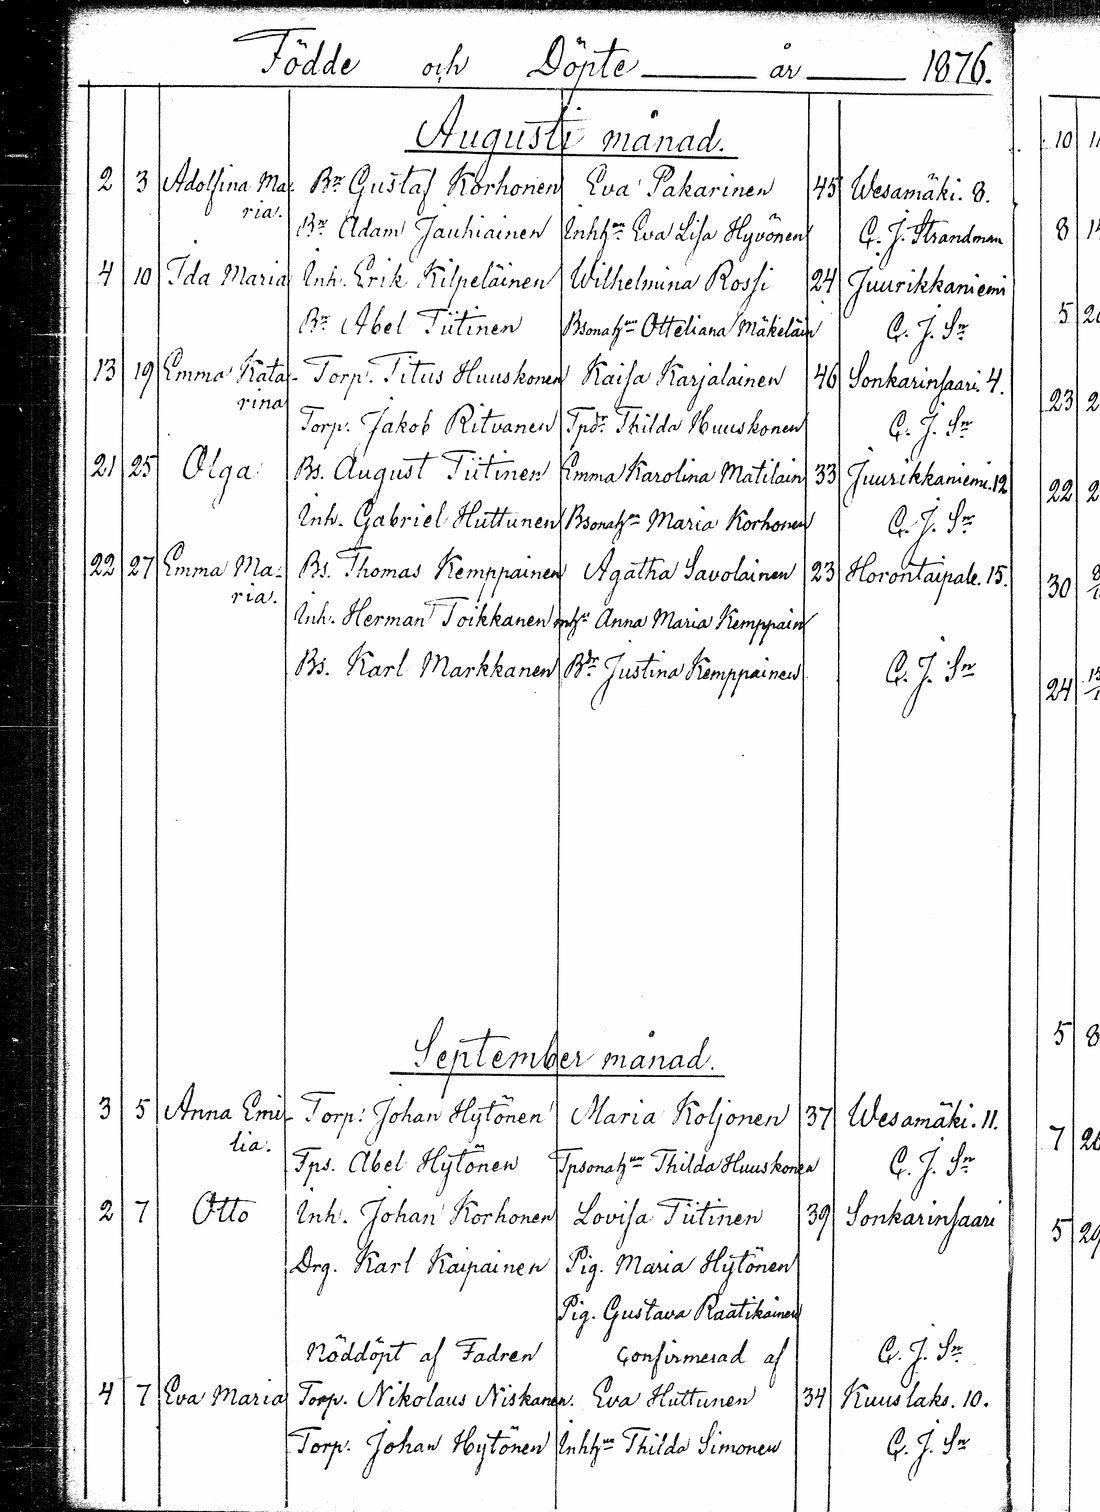 Födde och Döpte år 1876.
Augusti månad.
2 3 Adolfina Ma- Br Gustaf Korhonen Eva Pakarinen 45 Wesamäki. 8.
ria. Br Adam Jauhiainen Inhhun Eva Lisa Hyvönen C. J. Strandman
4 10 Ida Maria Inh. Erik Kilpeläinen Wilhelmina Rossi 24 Juurikkaniemi
Br Abel Tiitinen Bsonahun Otteliana Mäkeläin C. J. Sn
13 19 Emma Kata- Torp. Titus Huuskonen Kaisa Karjalainen 46 Sonkarinsaari. 4.
rina Torp. Jakob Ritvanen Tpdr Thilda Huuskonen C. J. Sn
21 25 Olga Bs. August Tiitinen Emma Karolina Matilain 33 Juurikkaniemi. 12
Inh. Gabriel Huttunen Bsonahun Maria Korhonen C. J. Sn
22 27 Emma Ma- Bs. Thomas Kemppainen Agatha Savolainen 23 Horontaipale. 15.
ria. Inh. Herman Toikkanen Anna Maria Kemppain
Bs. Karl Markkanen Bdr Justina Kemppainen C. J. Sn
September månad.
3 5 Anna Emi- Torp. Johan Hytönen Maria Koljonen 37 Wesamäki. 11.
lia. Tps. Abel Hytönen Tpsonahun Thilda Huuskonen C. J. Sn
2 7 Otto Inh. Johan Korhonen Lovisa Tiitinen 39 Sonkarinsaari
Drg. Karl Kaipainen Pig. Maria Hytönen
Pig. Gustava Raatikainen
Nöddöpt af Fadren Confirmerad af C. J. Sn
4 7 Eva Maria Torp. Nikolaus Niskanen. Eva Huttunen 34 Kuuslaks. 10.
Torp. Johan Hytönen Inhhun Thilda Simonen C. J. Sn
10
8
5
23
22
30
24
5 8
7
5